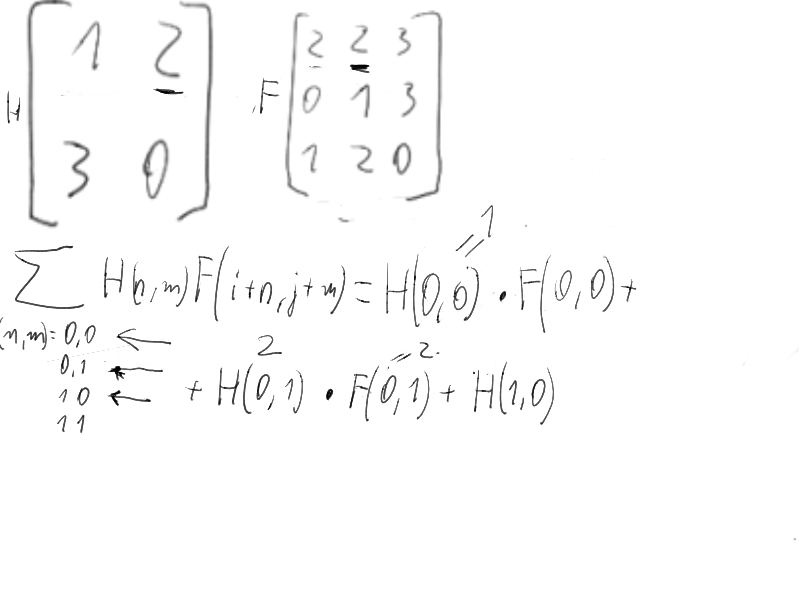 H [1 2
3 0]
F [2 2 3
0 1 3
1 2 0]
= 1
∑ H(n,m)F(i+n,j+m) = H(0,0) · F(0,0) +
(n,m)= 0,0 ←
2 = 2.
0,1 ←
+ H(0,1) · F(0,1) + H(1,0)
1 0 ←
1 1